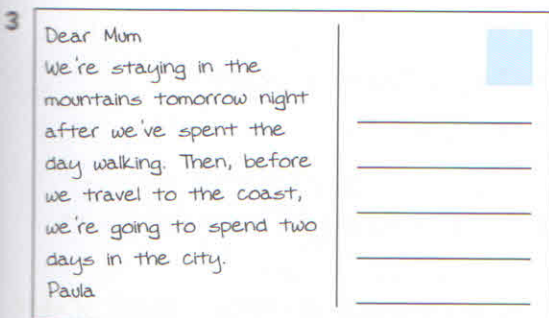 3
Dear Mum
We're staying in the
mountains tomorrow night
after we've spent the
day walking. Then, before
we travel to the coast,
we're going to spend two
days in the city.
Paula